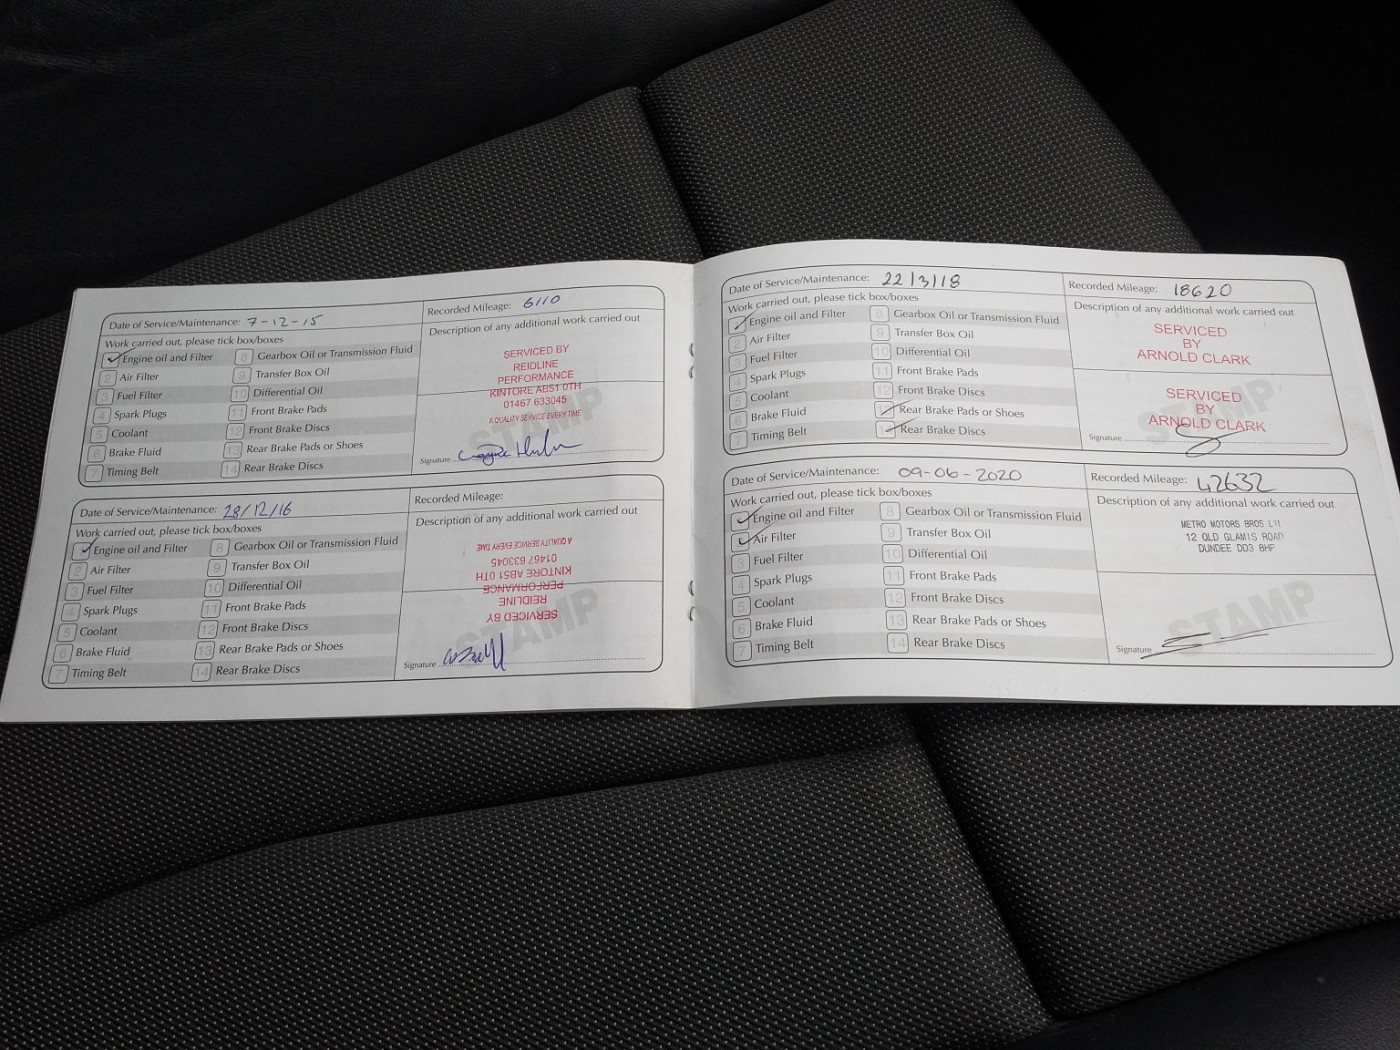 Date of Service/Maintenance: 7-12-15
Recorded Mileage: 6110
Work carried out, please tick box/boxes
Description of any additional work carried out
1 Engine oil and Filter
8 Gearbox Oil or Transmission Fluid
2 Air Filter
9 Transfer Box Oil
3 Fuel Filter
10 Differential Oil
4 Spark Plugs
11 Front Brake Pads
5 Coolant
12 Front Brake Discs
6 Brake Fluid
13 Rear Brake Pads or Shoes
7 Timing Belt
14 Rear Brake Discs
SERVICED BY
REIDLINE
PERFORMANCE
KINTORE AB51 0TH
01467 633045
A QUALITY SERVICE EVERY TIME
STAMP
Signature
Date of Service/Maintenance: 28/12/16
Recorded Mileage:
Work carried out, please tick box/boxes
Description of any additional work carried out
Engine oil and Filter
8 Gearbox Oil or Transmission Fluid
2 Air Filter
9 Transfer Box Oil
3 Fuel Filter
10 Differential Oil
4 Spark Plugs
11 Front Brake Pads
5 Coolant
12 Front Brake Discs
6 Brake Fluid
13 Rear Brake Pads or Shoes
7 Timing Belt
14 Rear Brake Discs
SERVICED BY
REIDLINE
PERFORMANCE
KINTORE AB51 0TH
01467 633045
A QUALITY SERVICE EVERY TIME
STAMP
Signature
Date of Service/Maintenance: 22/3/18
Recorded Mileage: 18620
Work carried out, please tick box/boxes
Description of any additional work carried out
Engine oil and Filter
8 Gearbox Oil or Transmission Fluid
2 Air Filter
9 Transfer Box Oil
3 Fuel Filter
10 Differential Oil
4 Spark Plugs
11 Front Brake Pads
5 Coolant
12 Front Brake Discs
6 Brake Fluid
Rear Brake Pads or Shoes
7 Timing Belt
Rear Brake Discs
SERVICED
BY
ARNOLD CLARK
SERVICED
BY
ARNOLD CLARK
STAMP
Signature
Date of Service/Maintenance: 09-06-2020
Recorded Mileage: 42632
Work carried out, please tick box/boxes
Description of any additional work carried out
Engine oil and Filter
8 Gearbox Oil or Transmission Fluid
Air Filter
9 Transfer Box Oil
3 Fuel Filter
10 Differential Oil
4 Spark Plugs
11 Front Brake Pads
5 Coolant
12 Front Brake Discs
6 Brake Fluid
13 Rear Brake Pads or Shoes
7 Timing Belt
14 Rear Brake Discs
METRO MOTORS BROS
12 OLD GLAMIS ROAD
DUNDEE DD3 8HP
STAMP
Signature